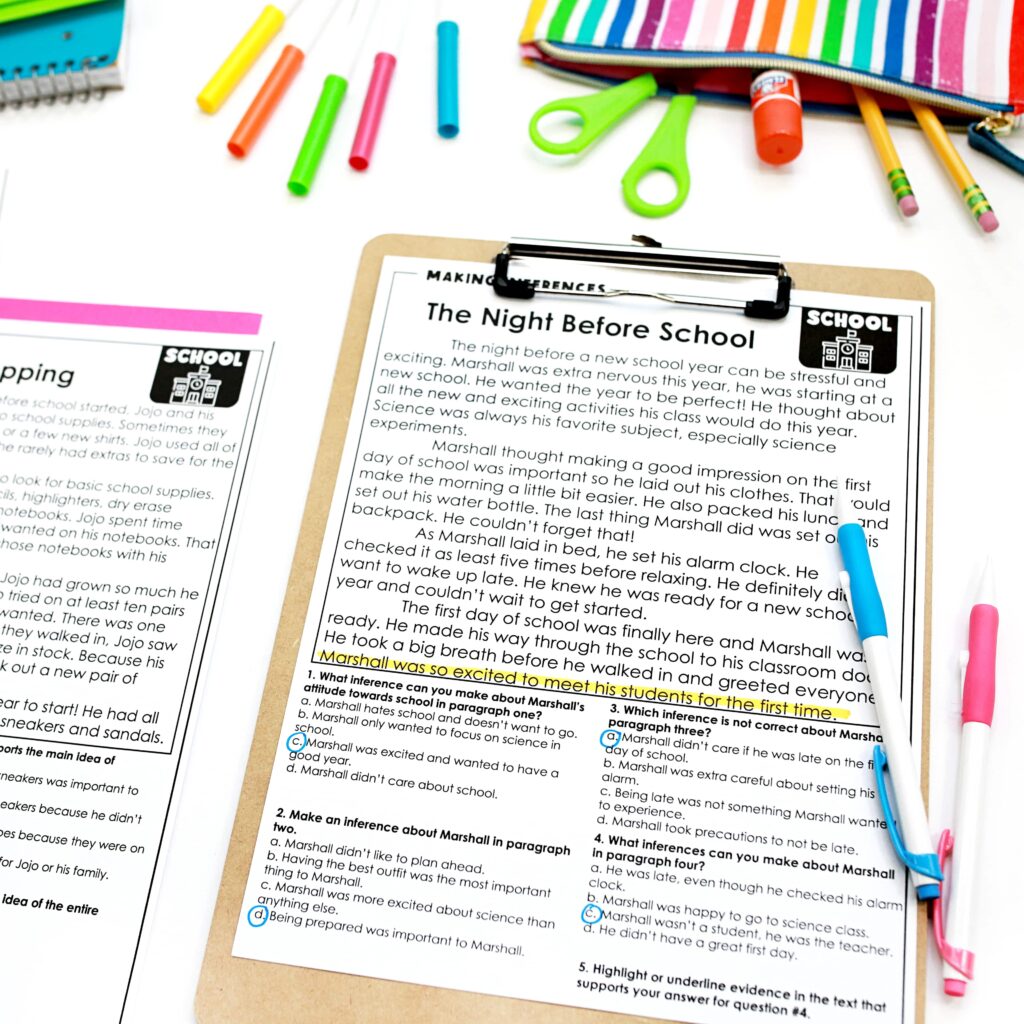 pping
SCHOOL
efore school started, Jojo and his
o school supplies. Sometimes they
or a few new shirts. Jojo used all of
he rarely had extras to save for the
o look for basic school supplies.
cils, highlighters, dry erase
notebooks. Jojo spent time
wanted on his notebooks. That
hose notebooks with his
Jojo had grown so much he
tried on at least ten pairs
wanted. There was one
they walked in, Jojo saw
ze in stock. Because his
k out a new pair of
ear to start! He had all
sneakers and sandals.
ports the main idea of
sneakers was important to
eakers because he didn't
oes because they were on
for Jojo or his family.
idea of the entire
MAKING INFERENCES
The Night Before School
SCHOOL
The night before a new school year can be stressful and
exciting. Marshall was extra nervous this year, he was starting at a
new school. He wanted the year to be perfect! He thought about
all the new and exciting activities his class would do this year.
Science was always his favorite subject, especially science
experiments.
Marshall thought making a good impression on the first
day of school was important so he laid out his clothes. That would
make the morning a little bit easier. He also packed his lunch and
set out his water bottle. The last thing Marshall did was set out his
backpack. He couldn't forget that!
As Marshall laid in bed, he set his alarm clock. He
checked it as least five times before relaxing. He definitely di
want to wake up late. He knew he was ready for a new schoo
year and couldn't wait to get started.
The first day of school was finally here and Marshall wa
ready. He made his way through the school to his classroom doo
He took a big breath before he walked in and greeted everyone
Marshall was so excited to meet his students for the first time.
1. What inference can you make about Marshall's
attitude towards school in paragraph one?
a. Marshall hates school and doesn't want to go.
b. Marshall only wanted to focus on science in
school.
c. Marshall was excited and wanted to have a
good year.
d. Marshall didn't care about school.
2. Make an inference about Marshall in paragraph
two.
a. Marshall didn't like to plan ahead.
b. Having the best outfit was the most important
thing to Marshall.
c. Marshall was more excited about science than
anything else.
d. Being prepared was important to Marshall.
3. Which inference is not correct about Marsha
paragraph three?
a. Marshall didn't care if he was late on the fi
day of school.
b. Marshall was extra careful about setting his
alarm.
c. Being late was not something Marshall wante
to experience.
d. Marshall took precautions to not be late.
4. What inferences can you make about Marshall
in paragraph four?
a. He was late, even though he checked his alarm
clock.
b. Marshall was happy to go to science class.
c. Marshall wasn't a student, he was the teacher.
d. He didn't have a great first day.
5. Highlight or underline evidence in the text that
supports your answer for question #4.